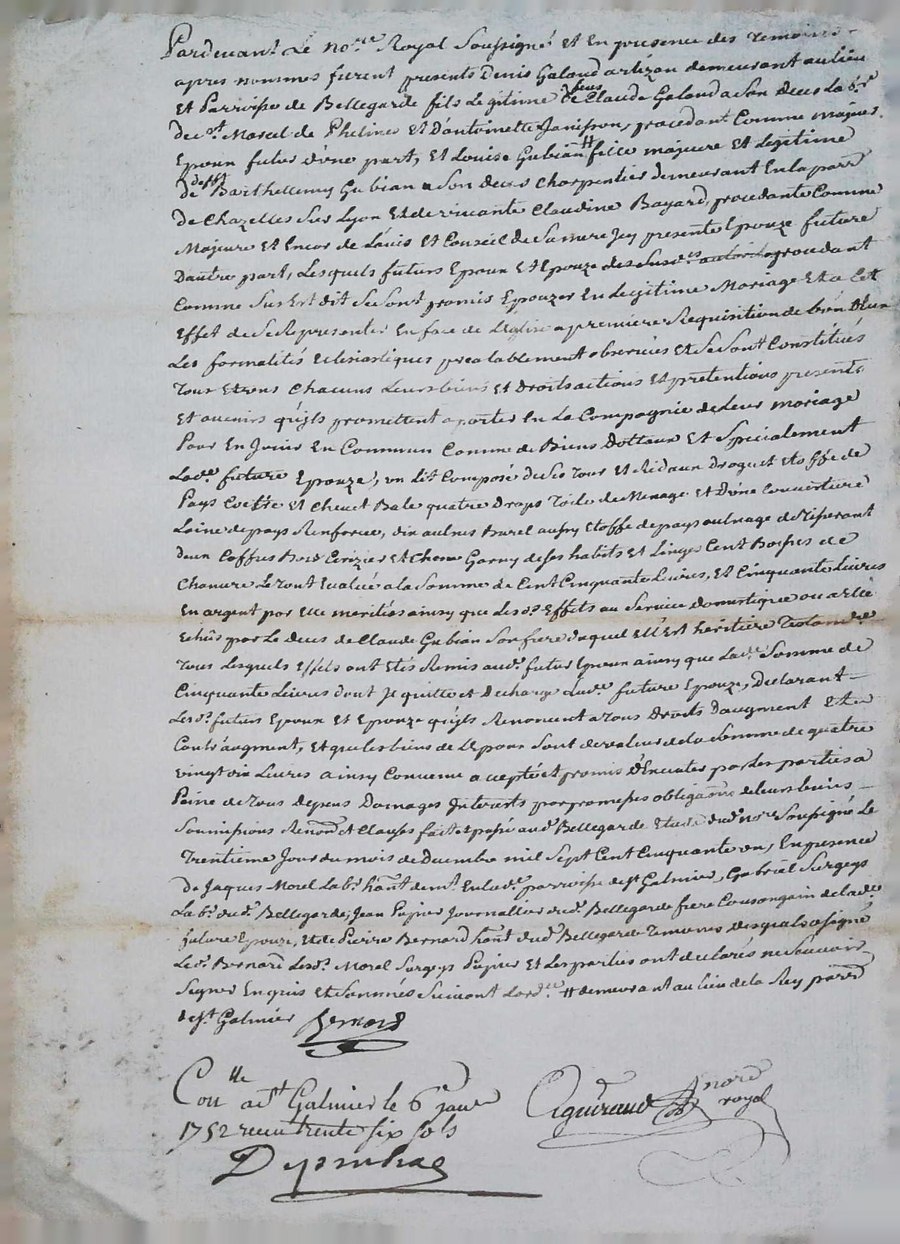 Pardevant Le no.re Royal Soussigné et En presence des temoins
apres nommes furent presents Denis Galand artizan demeurant au lieu
Et Parroisse de Bellegarde fils Legitime de Claude Galand a son deces La.br
de st. Marcel de Phelines Et D'antoinette Janisson, procedant Comme majeur
Epoux futur d'une part, Et Louise Gubian # fille majeure et Legitime
de deff.t Barthellemy Gubian a son deces Charpentier demeurant En la parr.
de Chazelles sur Lyon Et de vivante Claudine Bayard, procedante Comme
Majeure et Encor de L'avis et Conseil de sa mere Icy presente Epouze future
D'autre part, Lesquels futurs Epoux Et Epouze procedant
Comme sus Est dit se sont promis Epouzer En Legitime Mariage Et a Cet
Effet de se Representer En face de L'Eglise a premiere Requisition de L'un D'Eux
Les formalités Eclesiastiques prealablement observées Et se sont Constitués
tous Et uns Chacuns Leurs biens Et Droits actions Et pretentions presents
Et avenirs qu'ils promettent aporter En La Compagnie de Leur mariage
Pour En Jouir En Commun Comme de Biens Dotteaux Et Specialement
Lad.e future Epouze, un Lit Composé de son tour Et Rideaux Droguet Etoffe de
Pays Coëttre Et Chevet Bale quatre Draps toile de Menage Et D'une Couverture
Laine de pays Renforcée, dix aulnes Burel aussy Etoffe de pays
d'un Coffre Bois Cerizier Et Chene Garny de ses habits Et Linges Cent Bosses de
Chanvre Le tout Evalué a la somme de Cent Cinquante Livres, Et Cinquante Livres
En argent par Elle merités ainsy que Les d. Effets au Service domestique ou a Elle
Echus par Le deces de Claude Gubian son frere duquel Ell'Est héritiere
tous Lesquels Effets ont Etés Remis aud. futur Epoux ainsy que Lad.e Somme de
Cinquante Livres dont Il quitte et decharge Lad.e future Epouze, declarant
Lesd. futurs Epoux Et Epouze qu'ils Renoncent a tous Droits D'augment Et
Contr'augment, Et que les biens de L'Epoux sont de valeur de la somme de quatre
vingt dix Livres ainsy Convenu accepté et promis D'Executer par Les parties a
Peine de tous depens Domages Interets par promesses obligations de leurs biens
Soumissions Renon.ns et Clauses fait et passé aud. Bellegarde Etude dud. no.re Soussigné Le
trentième Jour du mois de Decembre mil Sept Cent Cinquante un, En presence
de Jaques Morel La.br hant demt. En lad.e parroisse de st Galmier, Gabriël Surgeys
La.br dud. Bellegarde, Jean Pupier Journallier dud. Bellegarde frere Cousangain de lad.e
future Epouze, Et de Pierre Bernard hant dud. Bellegarde temoins desquels a signé
Led. Bernard Lesd. Morel Surgeys Pupier Et Les parties ont declarés ne Scavoir
Signer Enquis Et Sommés Suivant L'ord.ce # demeurant au lieu de la Rey parr.
de st. Galmier Bernard
Con.lle a st Galmier le 6.e janv.
1752 recu trente six sols
Aguiraud no.re royal